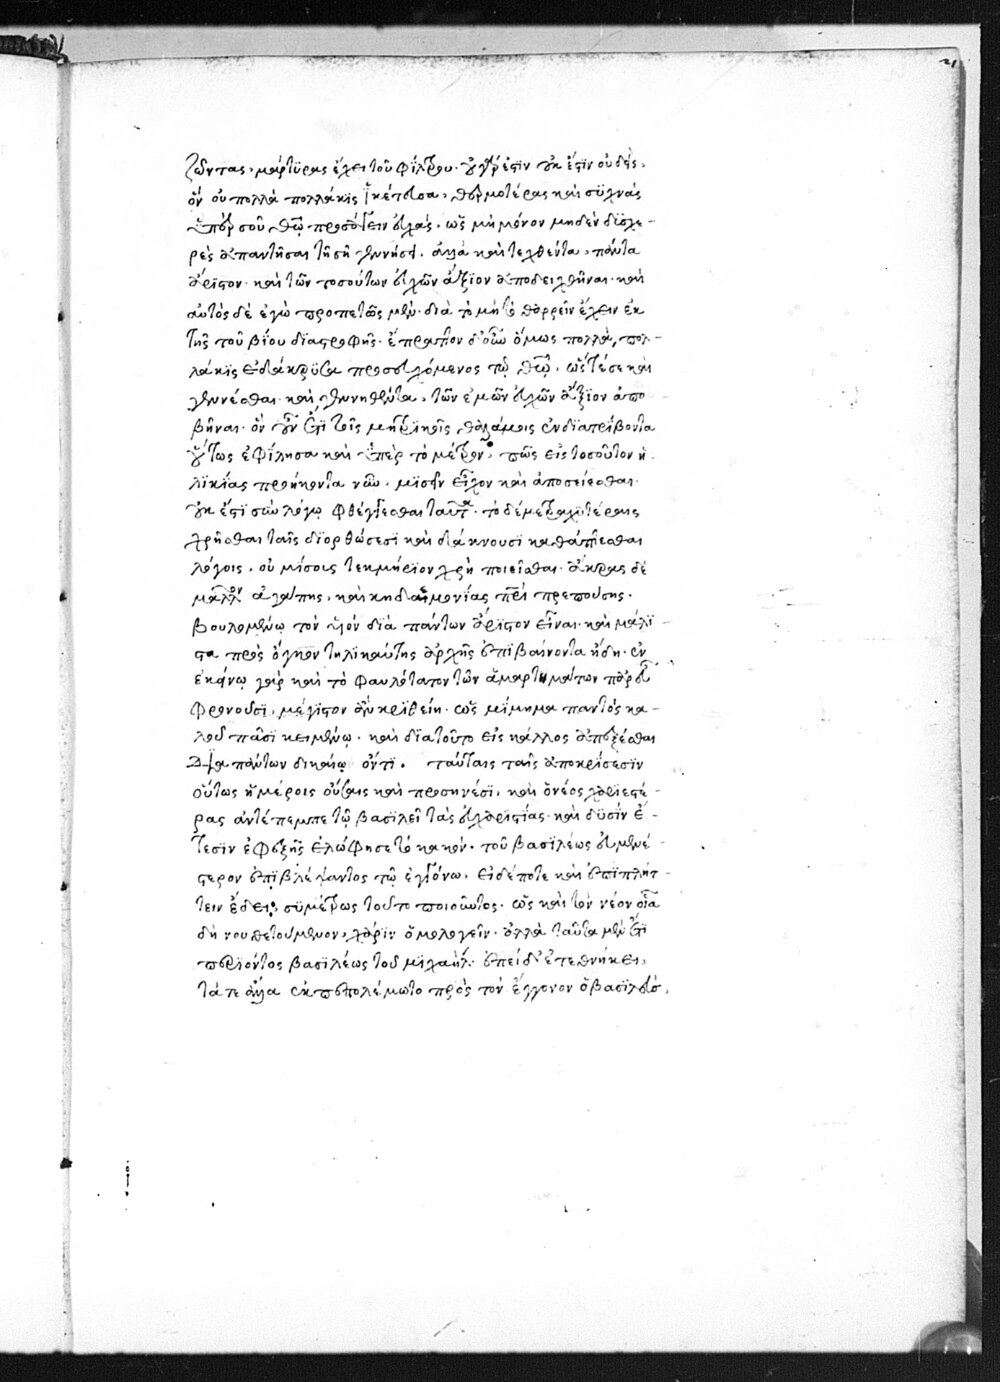 21
ζῶντας, μάρτυρας ἔχει τοῦ φίλτρου. οὐ γάρ ἐστιν οὐκ ἔστιν οὐδεὶς,
ὃν οὐ πολλὰ πολλάκις ἱκέτευσα, θερμοτέρας καὶ συχνὰς
ὑπὲρ σοῦ θεῷ προσάγειν εὐχάς. ὡς μὴ μόνον μηδὲν δυσχε-
ρὲς ἀπαντῆσαι τῇ σῇ γεννήσει. ἀλλὰ καὶ τεχθέντα, πάντα
ἄριστον. καὶ τῶν τοσούτων εὐχῶν ἄξιον ἀποδειχθῆναι. καὶ
αὐτὸς δὲ ἐγὼ προπετῶς μὲν. διὰ τὸ μὴ τὸ θαρρεῖν ἔχειν ἐκ
τῆς τοῦ βίου διαστροφῆς. ἔπραττον δ' οὖν ὅμως πολλὰ, πολ-
λάκις ἐδάκρυσα προσευχόμενος τῷ θεῷ. ὥστέ σε καὶ
γεννέσθαι. καὶ γεννηθέντα, τῶν ἐμῶν εὐχῶν ἄξιον ἀπο
βῆναι. ὃν οὖν ἔτι τοῖς μητρικοῖς θαλάμοις ἐνδιατρίβοντα
οὕτως ἐφίλησα καὶ ὑπὲρ τὸ μέτρον, πῶς εἰς τοσοῦτον ἡ
λικίας προήκοντα νῦν, μισεῖν εἶχον καὶ ἀποσείεσθαι.
οὐκ ἔστι σὺν λόγῳ φθέγγεσθαι ταῦτα. τὸ δέ με τραχυτέραις
χρῆσθαι ταῖς διορθώσεσι καὶ δάκνουσι καθάπτεσθαι
λόγοις, οὐ μίσους τεκμήριον χρὴ ποιεῖσθαι. ἄκρας δὲ
μᾶλλον ἀγάπης, καὶ κηδαιμονίας πατρὶ πρεπούσης.
βουλομένῳ τὸν υἱὸν διὰ πάντων ἄριστον εἶναι. καὶ μάλι
στα πρὸς ὄγκον τηλικαύτης ἀρχῆς ἐπιβαίνοντα ἤδη. ἐν
ἐκείνῳ γὰρ καὶ τὸ φαυλότατον τῶν ἁμαρτημάτων παρ' εὖ
φρονοῦσι, μέγιστον ἂν κριθείη. ὡς μίμημα παντὸς κα-
λοῦ πᾶσι κειμένῳ. καὶ διατοῦτο εἰς κάλλος ἀπεξέσθαι
διὰ πάντων δικαίῳ ὄντι. ταύταις ταῖς ἀποκρίσεσιν
οὕτως ἡμέροις οὔσαις καὶ προσηνέσι, καὶ ὁ νέος χαριεστέ-
ρας ἀντέπεμπε τῷ βασιλεῖ τὰς εὐχαριστίας. καὶ δυσὶν ἔ-
τεσιν ἐφεξῆς ἐλώφησε τὸ κακόν. τοῦ βασιλέως εὐμενέ-
στερον ἐπιβλέψαντος τῷ ἐγγόνῳ. εἰ δέ ποτε καὶ ἐπιπλήτ-
τειν ἔδει, συμέτρως τοῦτο ποιοῦντος. ὡς καὶ τὸν νέον οἷα
δὴ νουθετούμενον, χάριν ὁμολογεῖν. ἀλλὰ ταῦτα μὲν ἔτι
περιόντος βασιλέως τοῦ μιχαήλ. ἐπεὶ δ' ἐτεθνήκει,
τά τε ἄλλα ἐκπεπολέμωτο πρὸς τὸν ἔγγονον ὁ βασιλεὺς.